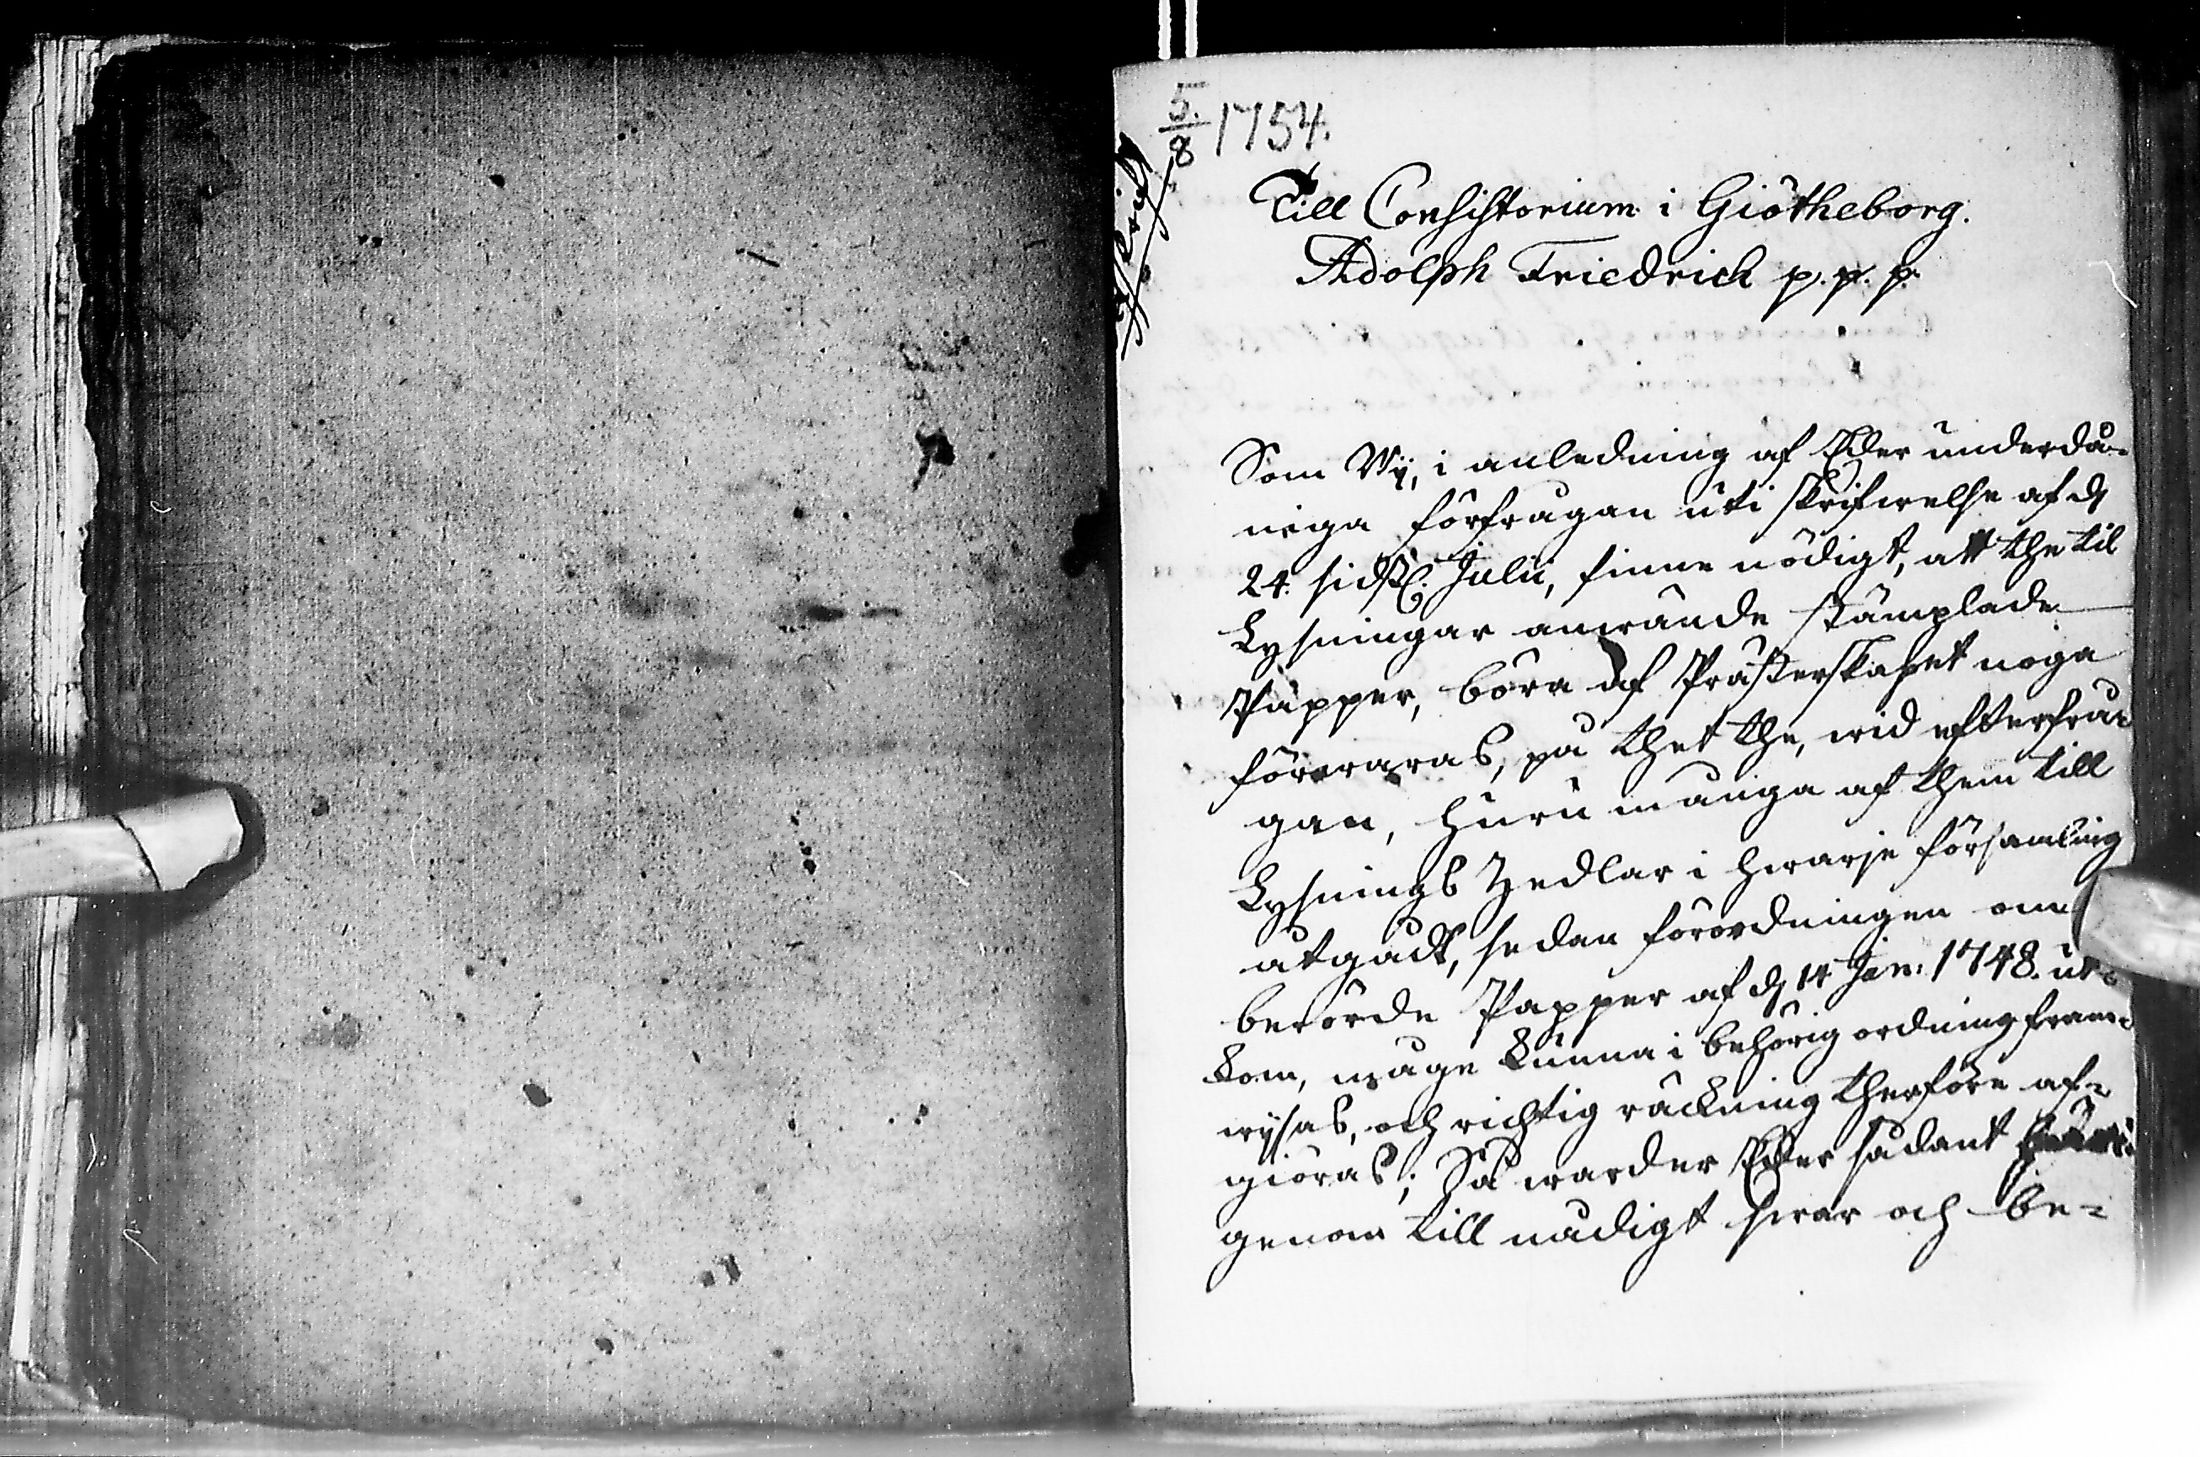 5/8 1754.
Afskrift
Till Consistorium i Giötheborg.
Adolph Friedrich p. p. p.
Som Wij, i anledning af Eder underdå-
niga förfrågan uti skrifwelse af d
24. sidstl. Julii, finne nödigt, att the til
Lysningar anwände stämplade
Papper, böra af Prästerskapet noga
förwaras, på thet the, wid efterfrå-
gan, huru många af them till
Lysnings Zedlar i hwarje församling
utgådt, sedan förordningen om
berörde Papper af d 14 Jan: 1748. ut-
kom, måge kunna i behörig ordning fram-
wijsas, och richtig räckning therföre af-
giöras; Så warder Eder sådant
genom till nådigt swar och be-